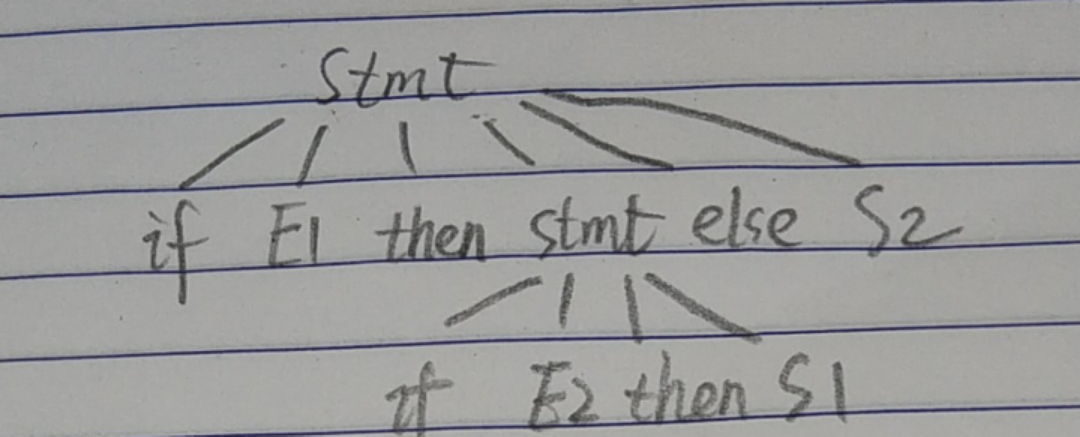 Stmt
if E1 then stmt else S2
if E2 then S1